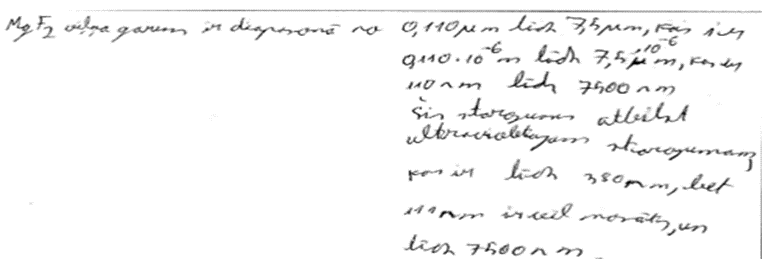 MgF2 viļņa garums ir diapazonā no 0,110 μm līdz 7,5 μm, kas ir
0,110·10^-6 m līdz 7,5·10^-6 m, kas ir
110 nm līdz 7500 nm
Šis starojums atbilst
ultravioletajam starojumam,
kas ir līdz 380 nm, bet
111 nm ir vēl, un
līdz 7500 nm.